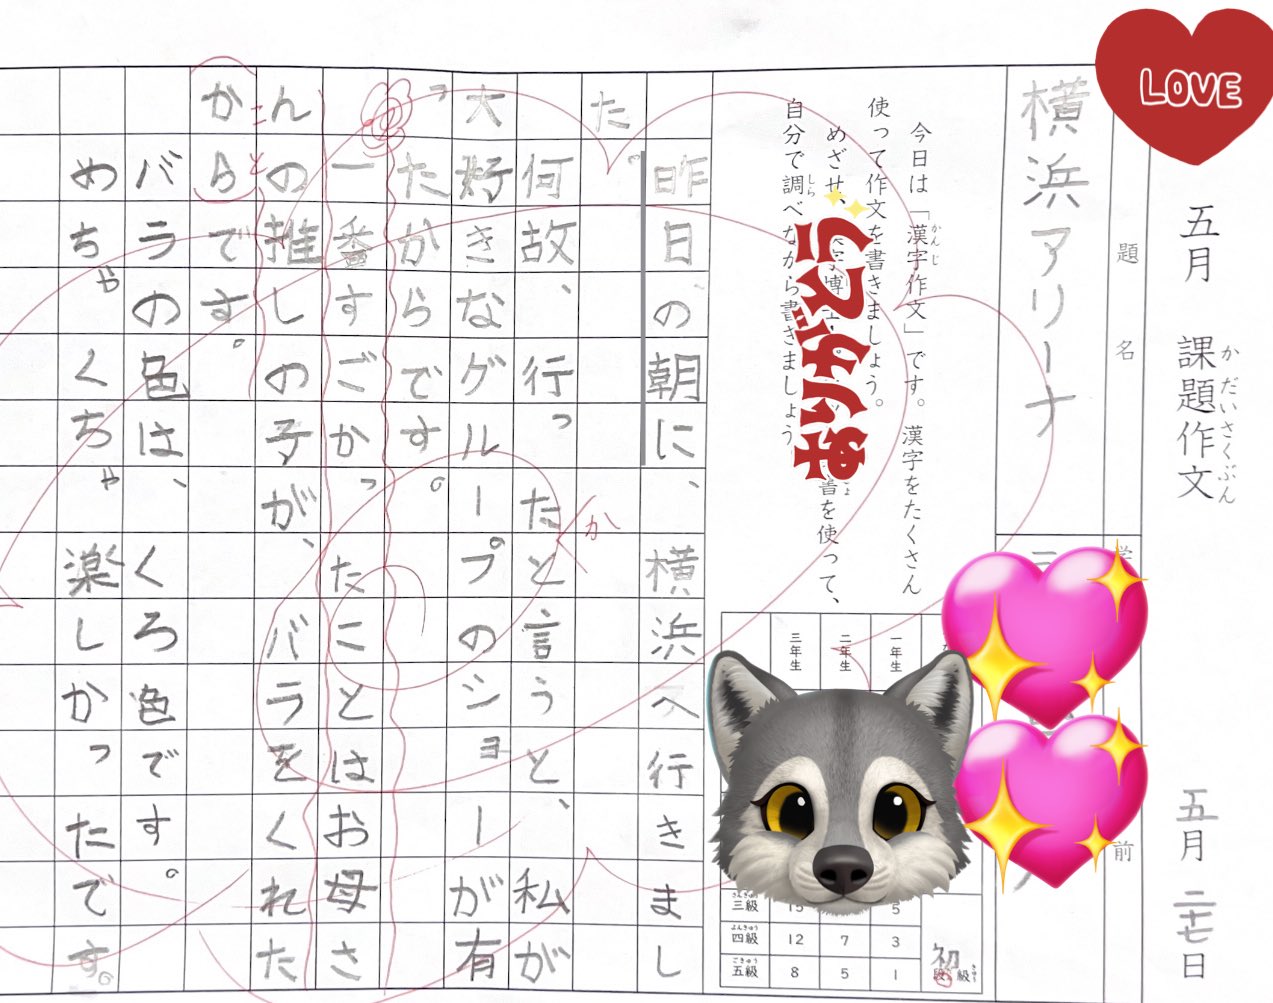 LOVE
五月　課題作文　五月二十七日
かだいさくぶん
題名
前
横浜アリーナ
今日は「漢字作文」です。漢字をたくさん
かんじ
使って作文を書きましょう。
めざせ、
を使って、
自分で調べながら書きましょう
しら
一年生
二年生
三年生
三級 15 5
さんきゅう
四級 12 7 3
よんきゅう
五級 8 5 1
ごきゅう
初
級
昨日の朝に、横浜へ行きまし
た。
何故、行ったと言うと、私が
か
大好きなグループのショーが有
ったからです。
一番すごかったことはお母さ
んの推しの子が、バラをくれた
こと
からです。
バラの色は、くろ色です。
めちゃくちゃ楽しかったです。